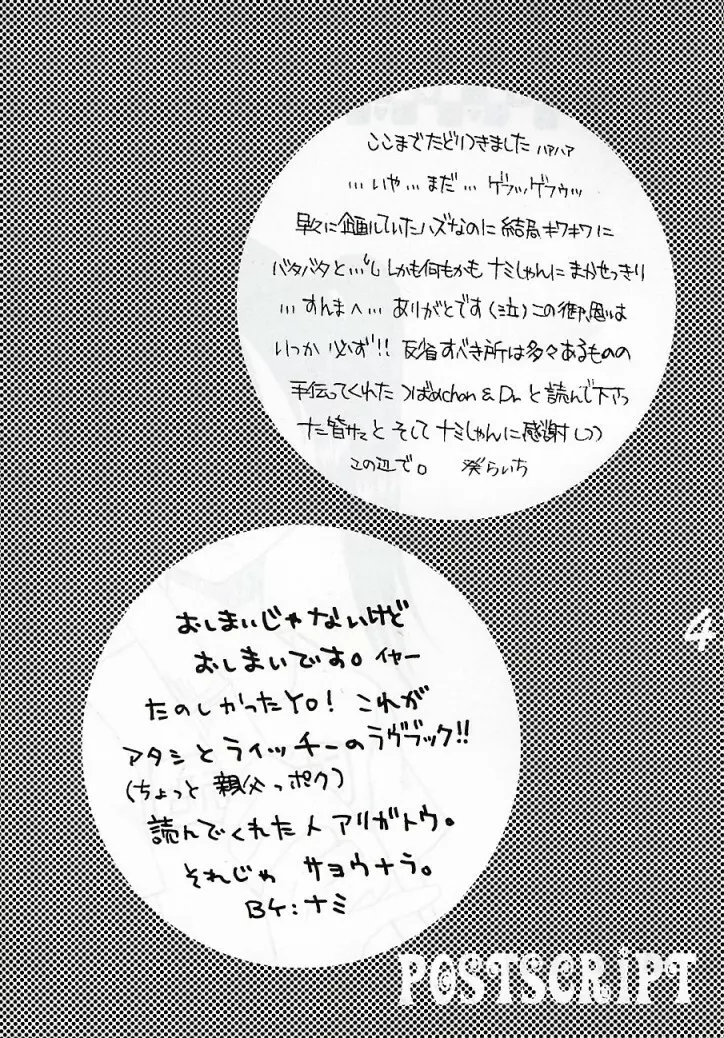 ここまでたどりつきました ハァハァ
…いや…まだ… ゲフッゲフゥッ
早々に企画していたハズなのに 結局キワキワに
バタバタと…"し しかも何もかも ナミしゃんに まかせっきり
…すんまへ… ありがとです(泣)この御恩は
いつか 必ず!! 反省すべき所は多々あるものの
手伝ってくれた つばめchan & Dr. と 読んで下さっ
た皆サマと そして ナミしゃんに感謝しつつ
この辺で。 葵らいち
おしまいじゃないけど
おしまいです。イヤー
たのしかったYO! これが
アタシとライッチーのラヴブック!!
(ちょっと 親父っポク)
読んでくれた人 アリガトウ。
それじゃ サヨウナラ。
BY:ナミ
4
POSTSCRIPT